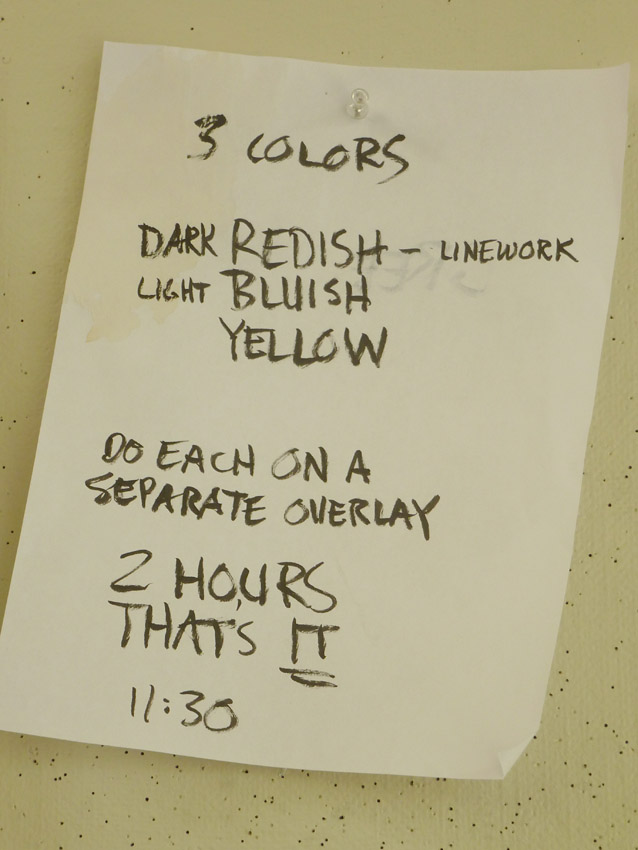 3 COLORS
DARK REDISH - LINEWORK
LIGHT BLUISH
YELLOW
DO EACH ON A
SEPARATE OVERLAY
2 HOURS
THAT'S IT
11:30